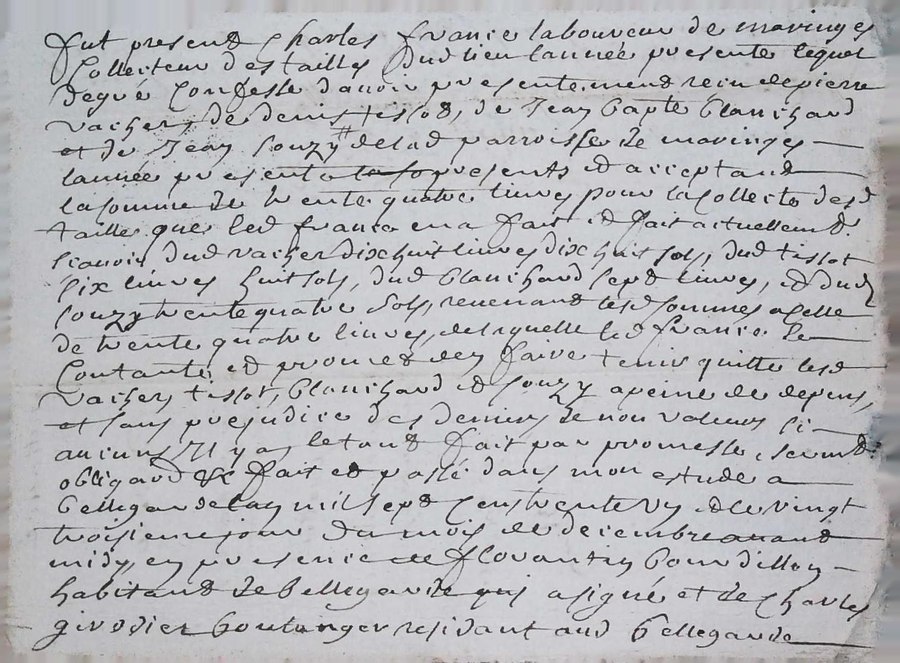 fut present Charles france laboureur de maringes
Collecteur des tailles dud lieu lannée presente lequel
degré Confesse davoir presentement receu de pierre
vacher, de denis tissot, de Jean bapte blanchard
et de Jean souzy # de lad parroisse de maringes
lannée presente presents et acceptand
la somme de trente quatre livres pour la Collecte desd
taille que led france en a fait et fait actuellemt
scavoir dud vacher dix huit livres dix huit sols, dud tissot
six livres huit sols, dud blanchard sept livres, et dud
souzy trente quatre sols, revenand lesd sommes a celle
de trente quatre livres, de laquelle led france se
Contante, et promet den faire tenir quitte lesd
vacher, tissot, blanchard et souzy a peine de depens,
et sans prejudice des deniers de non valleurs si
aucuns Il y a, le tout fait par promesse, sermt
obligaon &c fait et passé dans mon estude a
bellegarde lan mil sept cens trente et le vingt
troisieme jour du mois de decembre avand
midy, en presence de florantin bourdillon
habitand de bellegarde qui a signé et de Charles
girodier boulanger residant aud bellegarde